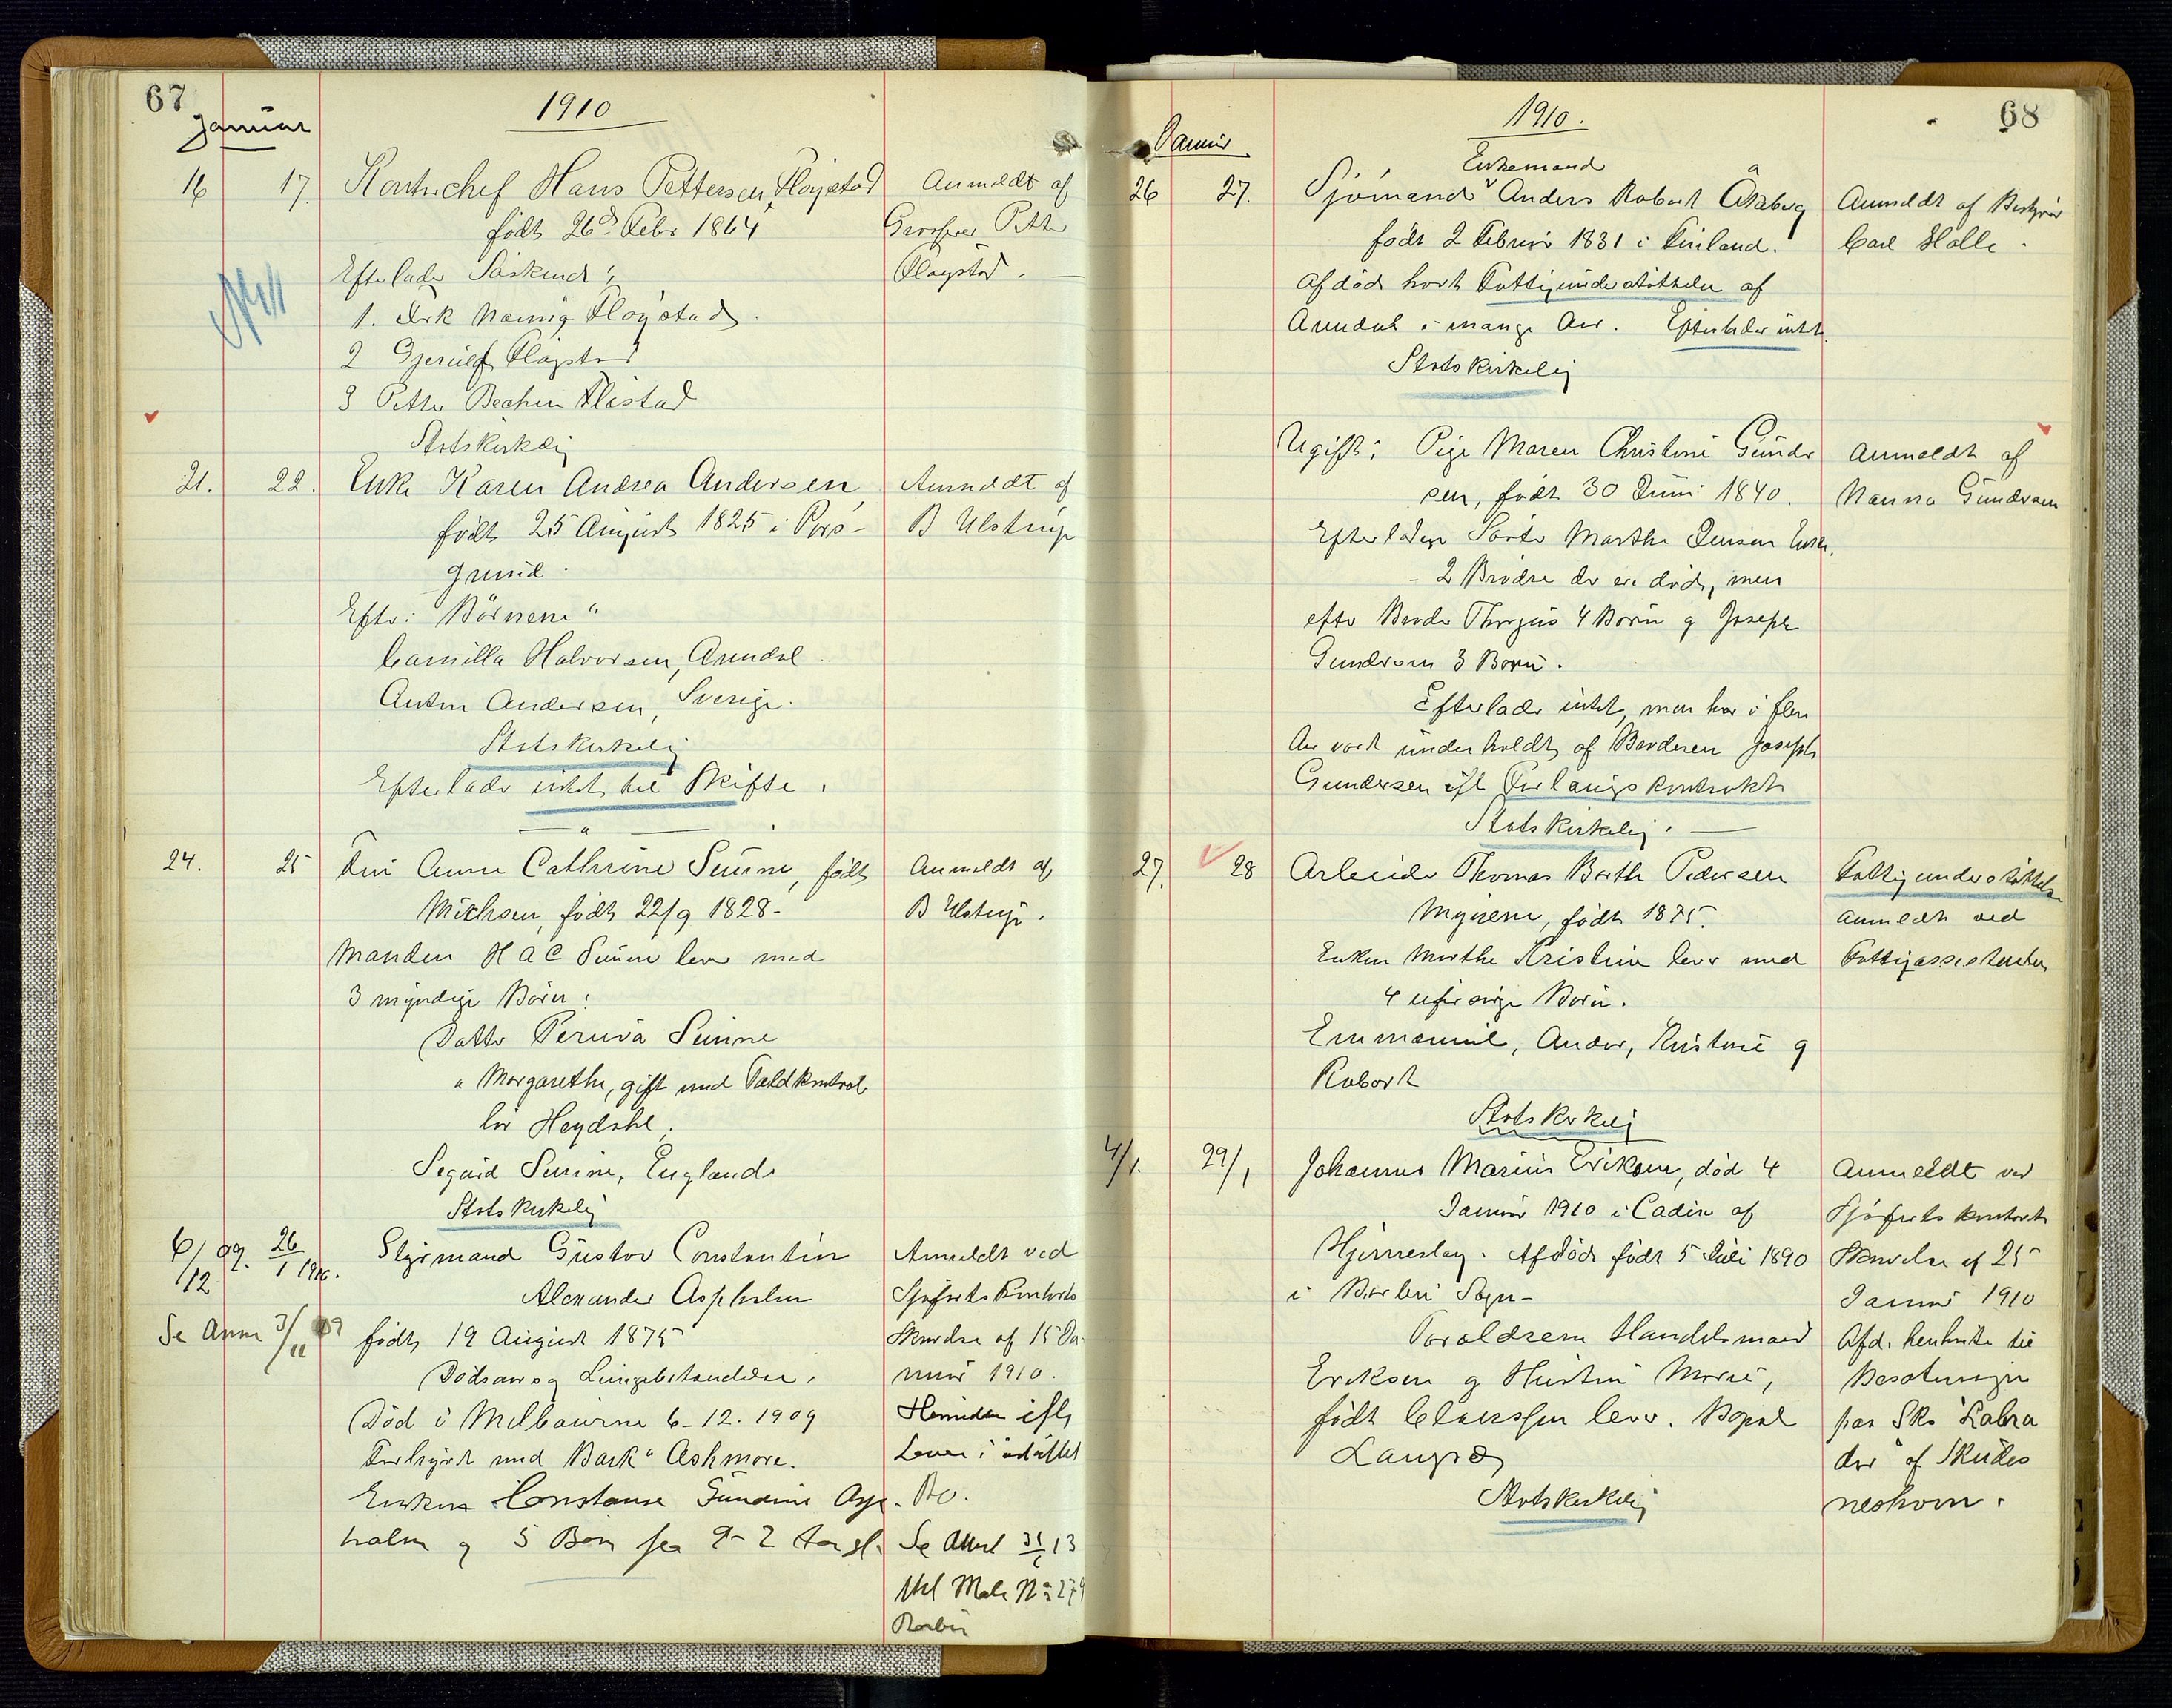 67
1910
Januar
16 17. Kontorchef Hans Pettersen Fløystad
født 26de Febr 1864
Efterlader Søskend:
1. Frk Nannig Fløystad.
2 Gjerulf Fløystad
3 Petter Bechen Fløistad
Statskirkelig
Anmeldt af
Grosserer Petter
Fløystad.
21. 22. Enke Karen Andrea Andersen,
født 25 August 1825 i Pors-
grund.
Eftr: Børnene"
Camilla Halvorsen, Arendal
Anton Andersen, Sverige.
Statskirkelig
Efterlader intet til Skifte.
Anmeldt af
B Ulstrup
24. 25 Fru Anne Cathrine Sunne, født
født 22/9 1828-
Manden H A C Sunne lever med
3 myndige Børn:
Datter Peruva Sunne
" Margarethe, gift med Toldkontrol
lør Heydahl.
Sigurd Sunne, England
Statskirkelig
Anmeldt af
B Ulstrup.
6/12 09. 26/1 1910. Styrmand Gustav Constantin
Alexander Aspholm
Se Anm 3/11 09 født 19 August 1875
Dødsaarsag Lungebetændelse.
Død i Melbourne 6-12. 1909
Forhyret med Bark "Ashmore.
Enken Constanse Gundine Asp-
holm og 5 Børn fra 9-2 Aar gl.
Anmeldt ved
Sjøfartskontorets
Skrivelse af 15 Ja-
nuar 1910.
Se Anm 31/ 13
No 279
68
1910.
Januar
26 27. Enkemand
Sjømand Anders Robert Åkaberg
født 2 Februar 1831 i Finland.
Afdød havt Fattigunderstøttelse af
Arendal i mange Aar. Efterlader intet.
Statskirkelig
Anmeldt af Bestyrer
Carl Holle.
Ugift: Pige Maren Christine Gunder
sen, født 30 Juni 1840.
Efterlader Søster Marthe Jensen Enke.
- 2 Brødre der ere død, men
efter Broder Thorgius 4 Børn og Joseph
Gundersen 3 Børn.
Efterlader intet, men har i flere
Aar vært underholdt af Broderen Joseph
Gundersen ifl Forlaugskontrakt
Statskirkelig.
Anmeldt af
Nanna Gundersen
27. 28 Arbeider Thomas Barth Pedersen
Myrene, født 1875.
Enken Marthe Kristine lever med
4 uforsørge Børn.
Emmanuel, Ander, Kristine og
Robert
Statskirkelig
Fattigunderstøttelse
anmeldt ved
Fattigassistenten
4/1. 29/1 Johannes Marius Eriksen, død 4
Januar 1910 i Cadix af
Hjerneslag. Afdød født 5 Juli 1890
i Sogn-
Forældrene Handelsmand
Eriksen og Hustru Marie,
født Claussen lever. Bopæl
Langsæ
Statskirkelig
Anmeldt ved
Sjøfartskontorets
Skrivelse af 25
Januar 1910
Afd. henhørte til
Besætningen
paa Sks "Labra
dor" af Skudes
neshavn.